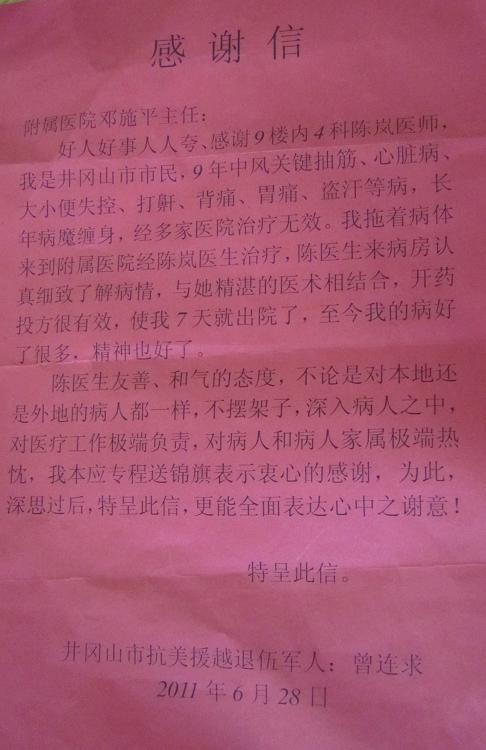 感谢信
附属医院邓施平主任：
好人好事人人夸、感谢9楼内4科陈岚医师，
我是井冈山市市民，9年中风关键抽筋、心脏病、
大小便失控、打鼾、背痛、胃痛、盗汗等病，长
年病魔缠身，经多家医院治疗无效。我拖着病体
来到附属医院经陈岚医生治疗，陈医生来病房认
真细致了解病情，与她精湛的医术相结合，开药
投方很有效，使我7天就出院了，至今我的病好
了很多，精神也好了。
陈医生友善、和气的态度，不论是对本地还
是外地的病人都一样，不摆架子，深入病人之中，
对医疗工作极端负责，对病人和病人家属极端热
忱，我本应专程送锦旗表示衷心的感谢，为此，
深思过后，特呈此信，更能全面表达心中之谢意！
特呈此信。
井冈山市抗美援越退伍军人：曾连求
2011年6月28日